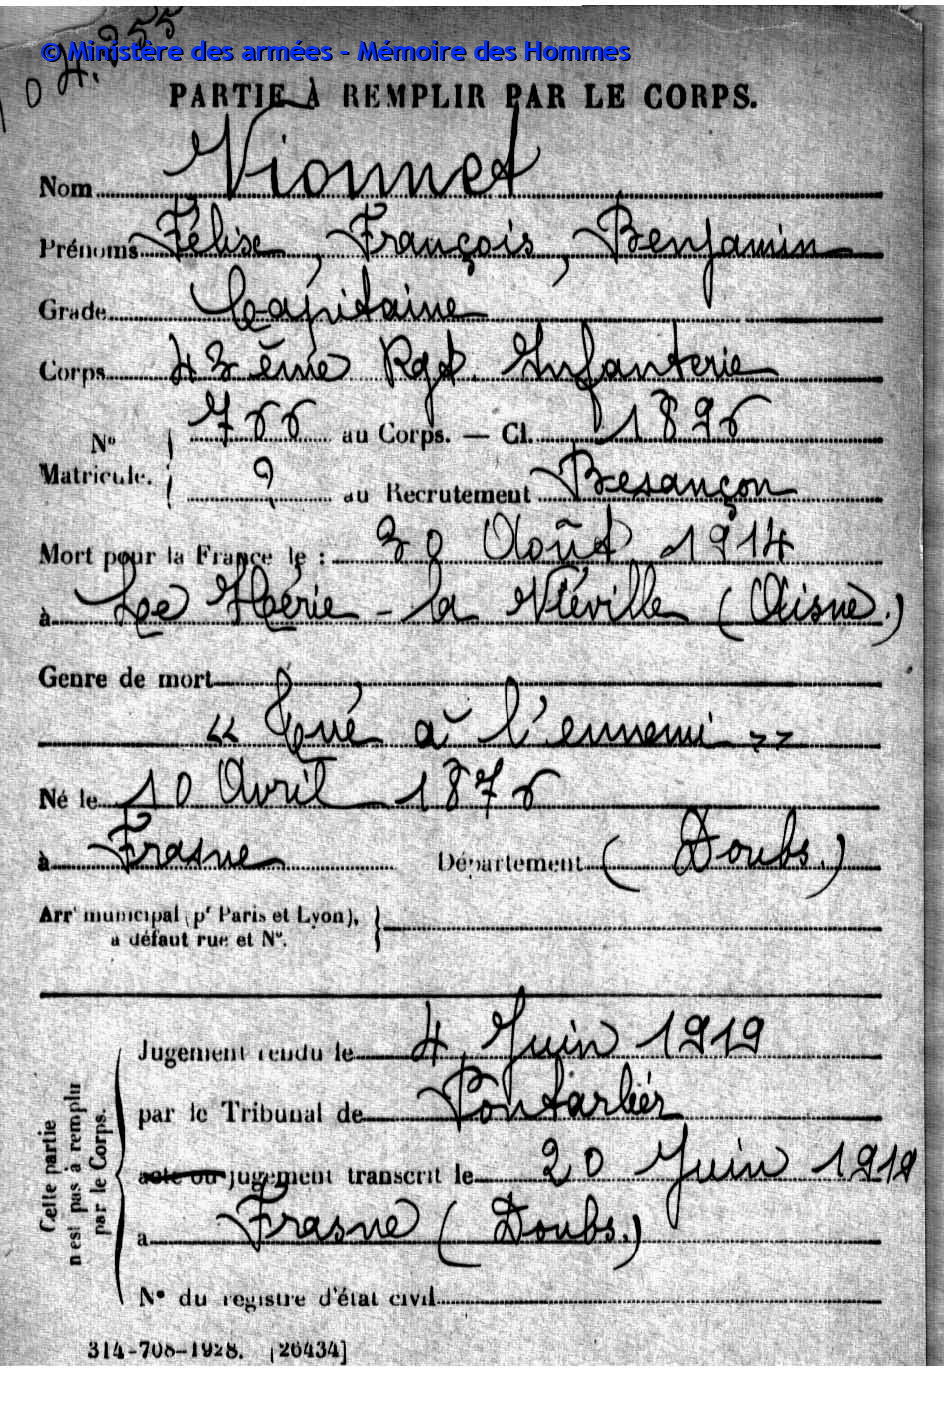 © Ministère des armées - Mémoire des Hommes
PARTIE À REMPLIR PAR LE CORPS.
Nom Vionnet
Prénoms Félise, François, Benjamin
Grade Capitaine
Corps 43ème Rgt. Infanterie
N° Matricule. 766 au Corps. — Cl. 1896
? au Recrutement Besançon
Mort pour la France le : 30 Août 1914
à Le Hérie - la Viéville (Aisne.)
Genre de mort
« Tué à l'ennemi »
Né le 10 Avril 1876
à Frasne Département (Doubs.)
Arrt municipal (pr Paris et Lyon),
à défaut rue et N°.
Cette partie
n'est pas à remplir
par le Corps.
Jugement rendu le 4 Juin 1919
par le Tribunal de Pontarlier
acte ou jugement transcrit le 20 Juin 1919
à Frasne (Doubs.)
N° du registre d'état civil
314-708-1928. [26434]